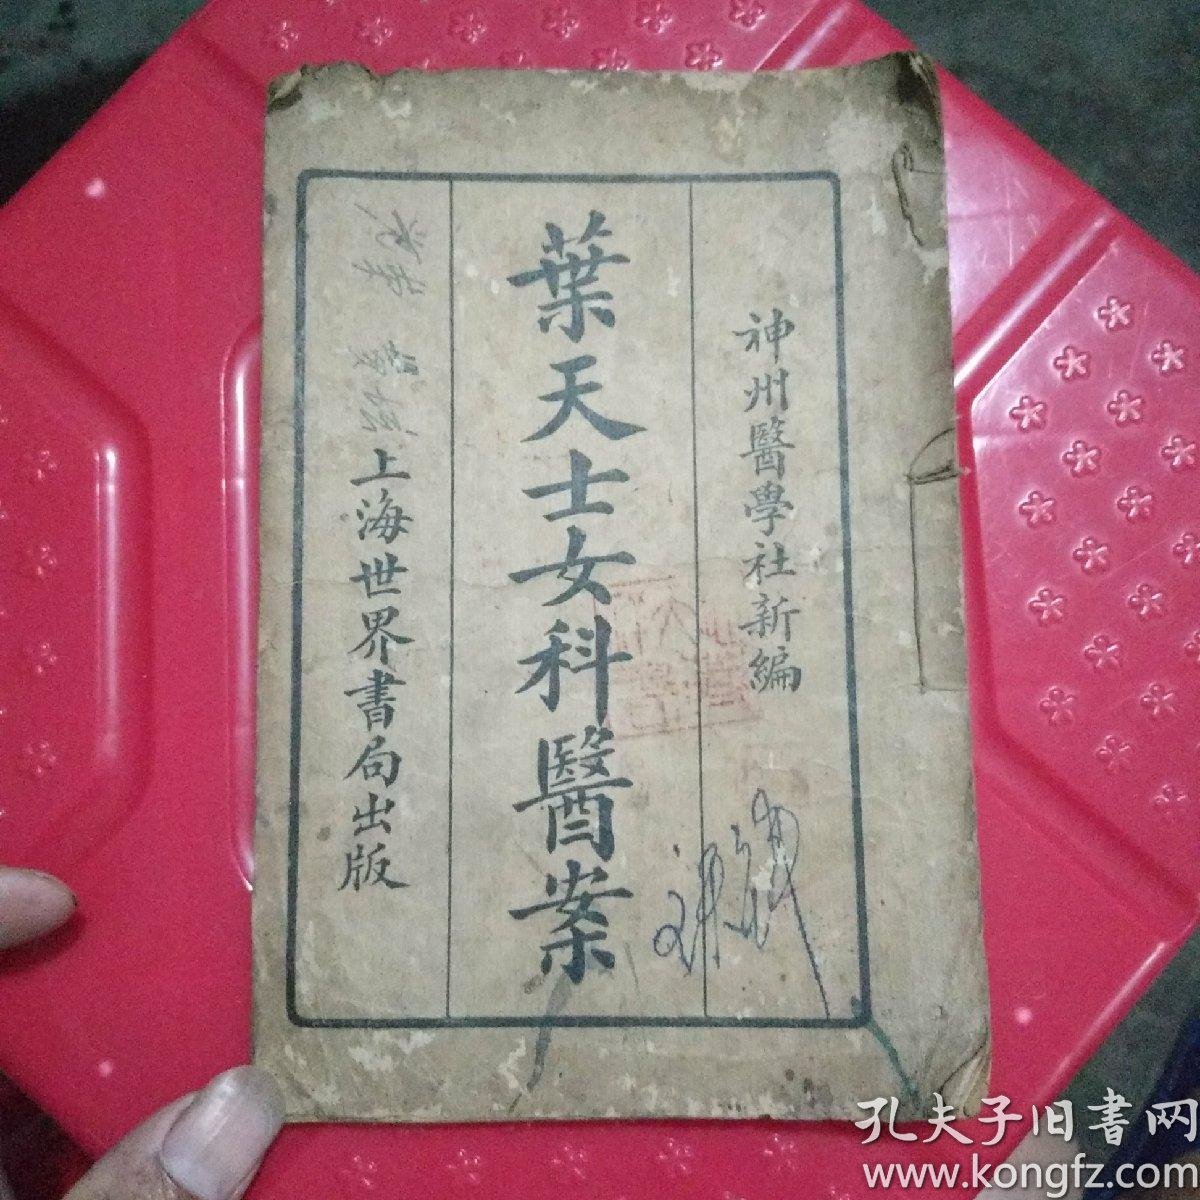 神州醫學社新編
葉天士女科醫案
上海世界書局出版
孔夫子旧書网
www.kongfz.com